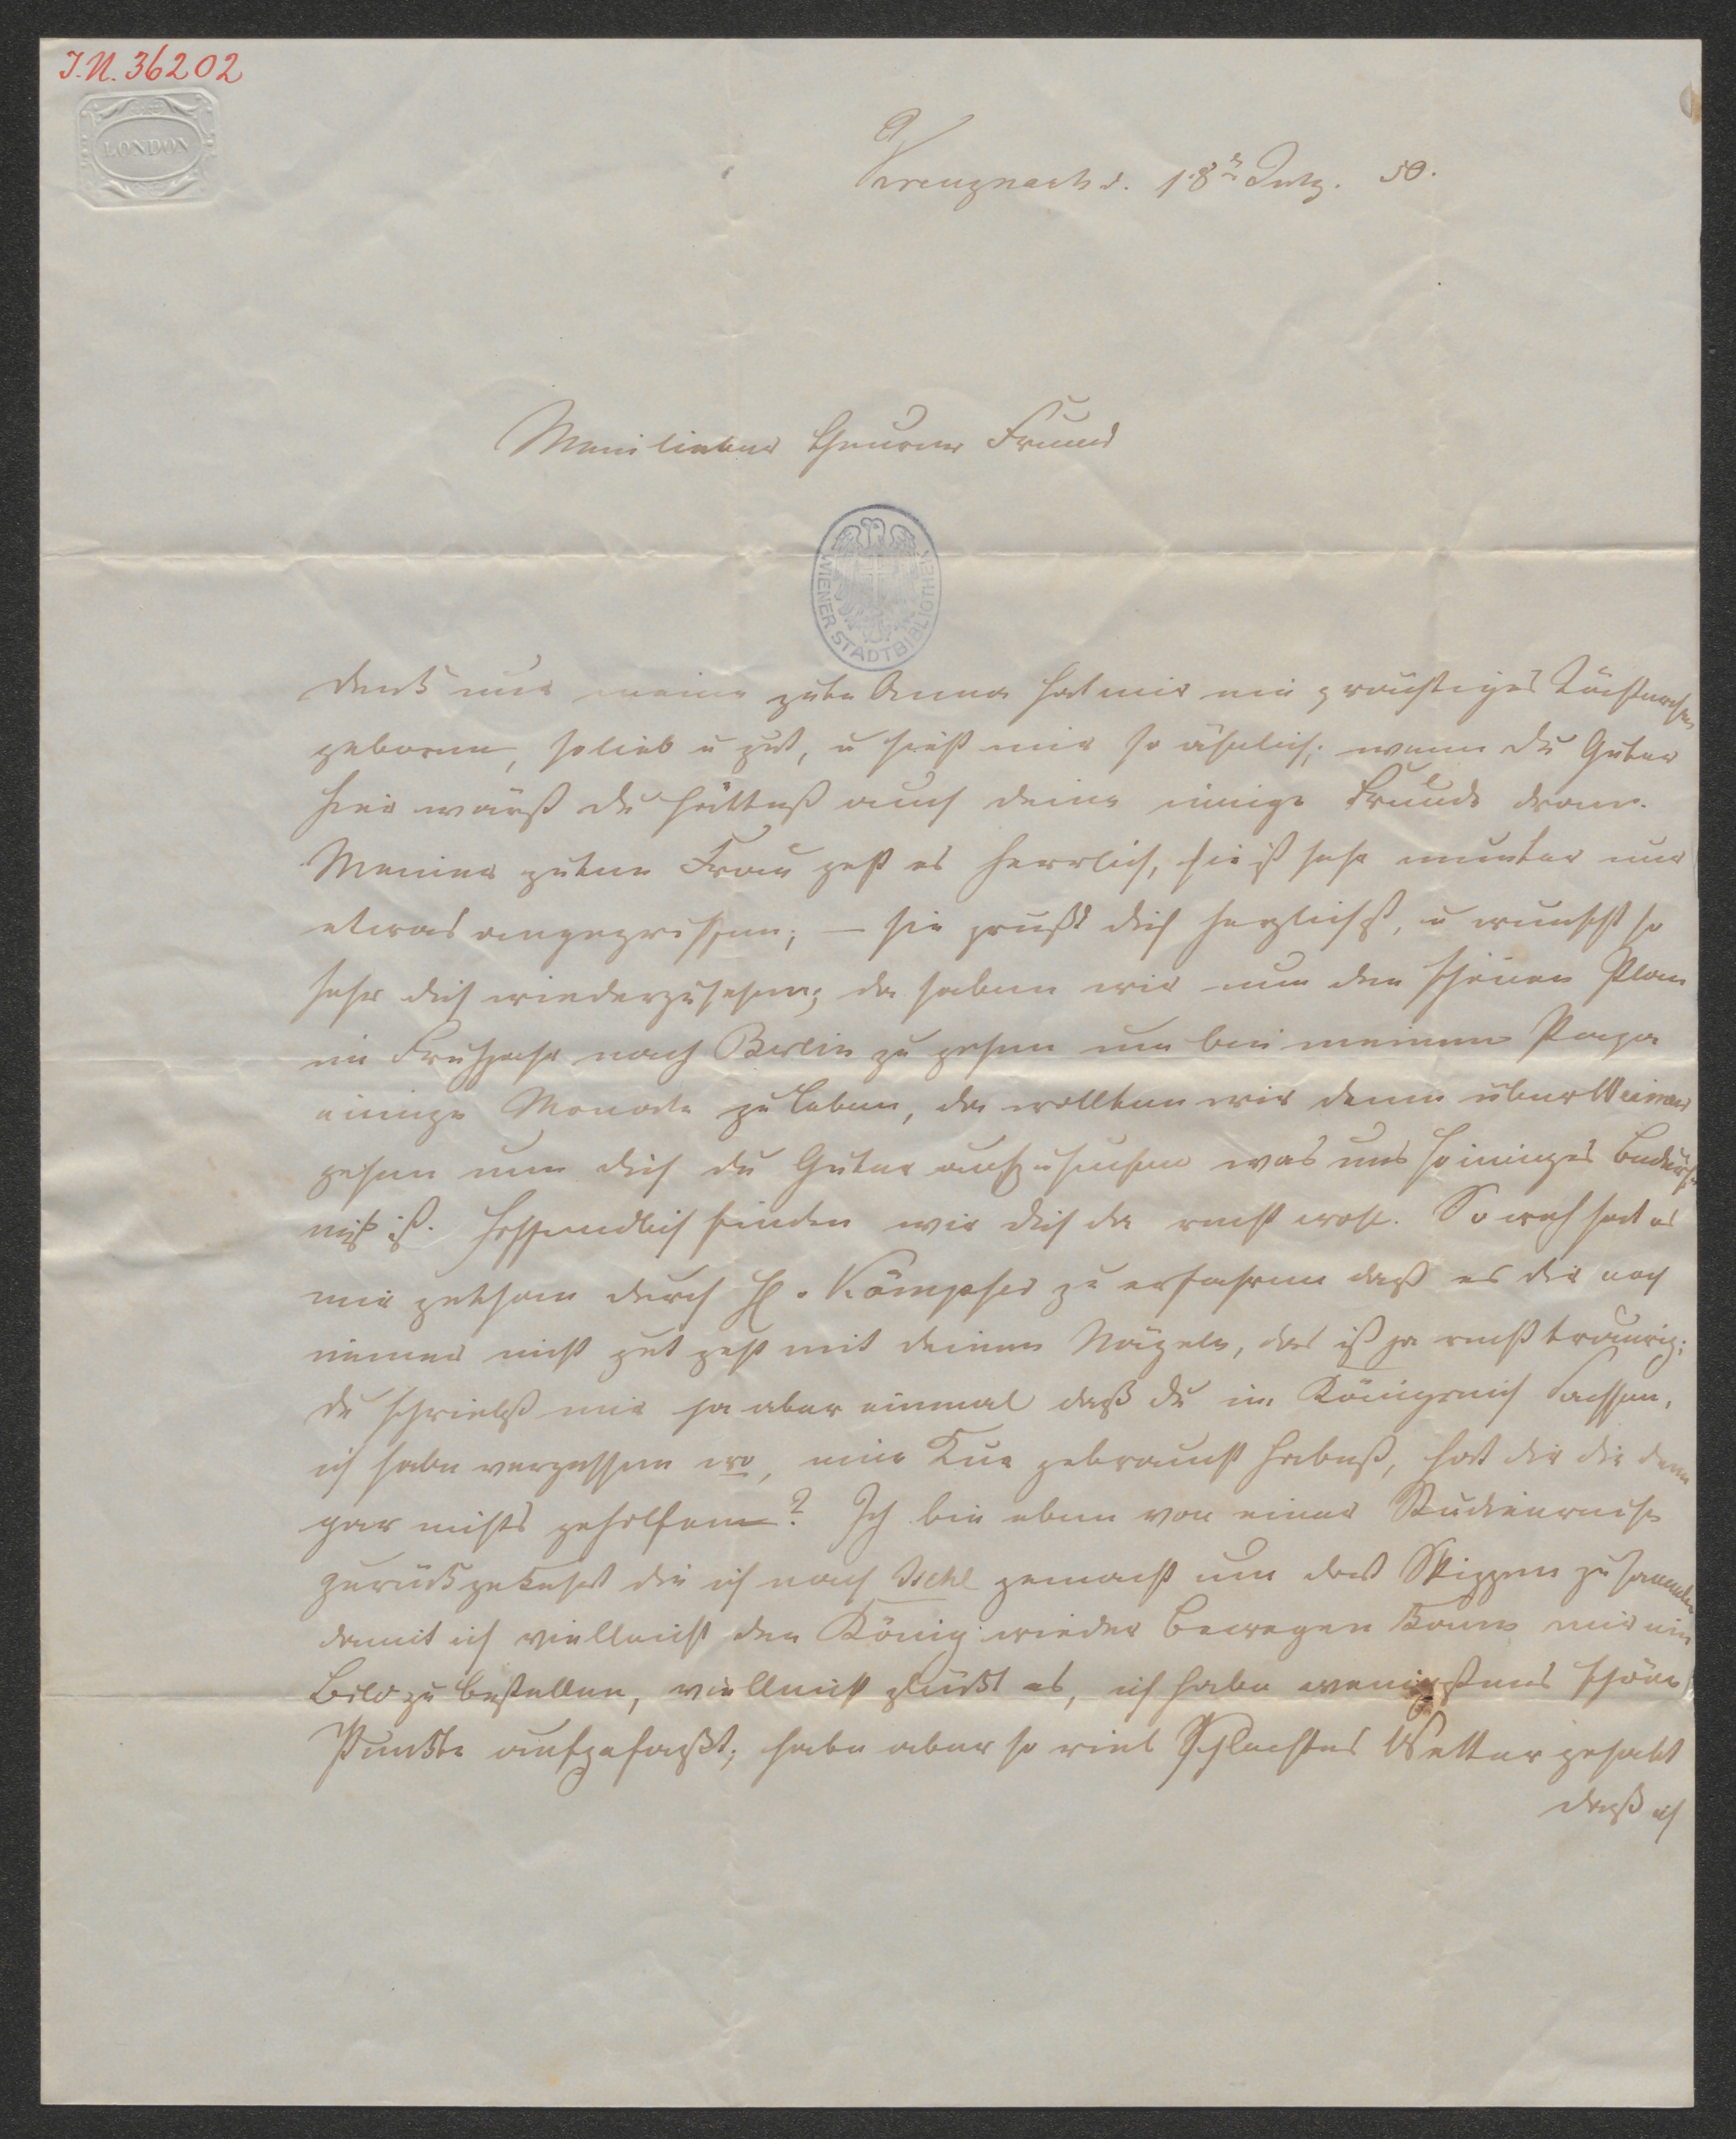 J.N. 36202
LONDON
Kreuznach d. 18t Septz. 50.
Mein lieber theurer Freund
WIENER STADTBIBLIOTHEK
denk nur meine gute Anna hat mir ein prächtiges Töchterchen
geboren, so lieb u gut, u sieht mir so ähnlich; wenn du Guter
hier wärst du hättest auch deine innige Freude dran.
Meiner guten Frau geht es herrlich, sie ist sehr munter nur
etwas angegriffen; — sie grüßt dich herzlichst, u wunscht so
sehr dich wiederzusehen; da haben wir nun den schönen Plan
im Fruhjahr nach Berlin zu gehen um bei meinem Papa
einige Monate zu leben, da wollten wir denn über Weimar
gehen um dich du Guter aufzusuchen was uns so inniges Bedürf-
niß ist. Hoffendlich finden wir dich da recht wohl. So weh hat es
mir gethan durch H. Kämpfer zu erfahren daß es dir noch
immer nicht gut geht mit deinen Nägeln, das ist ja recht traurig;
du schriebst mir ja aber einmal daß du im Königreich Sachsen,
ich habe vergessen wo, eine Kur gebraucht habest, hat dir die denn
gar nichts geholfen? Ich bin eben von einer Studienreise
zurückgekehrt die ich nach Ischl gemacht um dort Skizzen zu sammeln
damit ich vielleicht den König wieder bewegen kann mir ein
Bild zu bestellen, vielleicht glückt es, ich habe wenigstens schöne
Punkte aufgefaßt; habe aber so viel schlechtes Wetter gehabt
daß ich